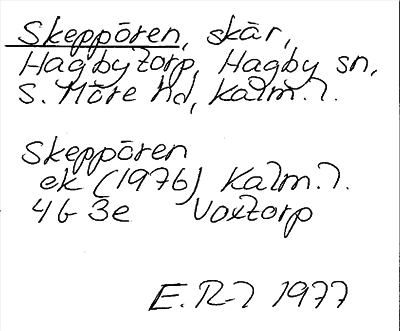 Skeppören, skär,
Hagbytorp, Hagby sn,
S. Möre hd, Kalm. l.
Skeppören
ek (1976) Kalm. l.
4G 3e Voxtorp
E. R-l 1977